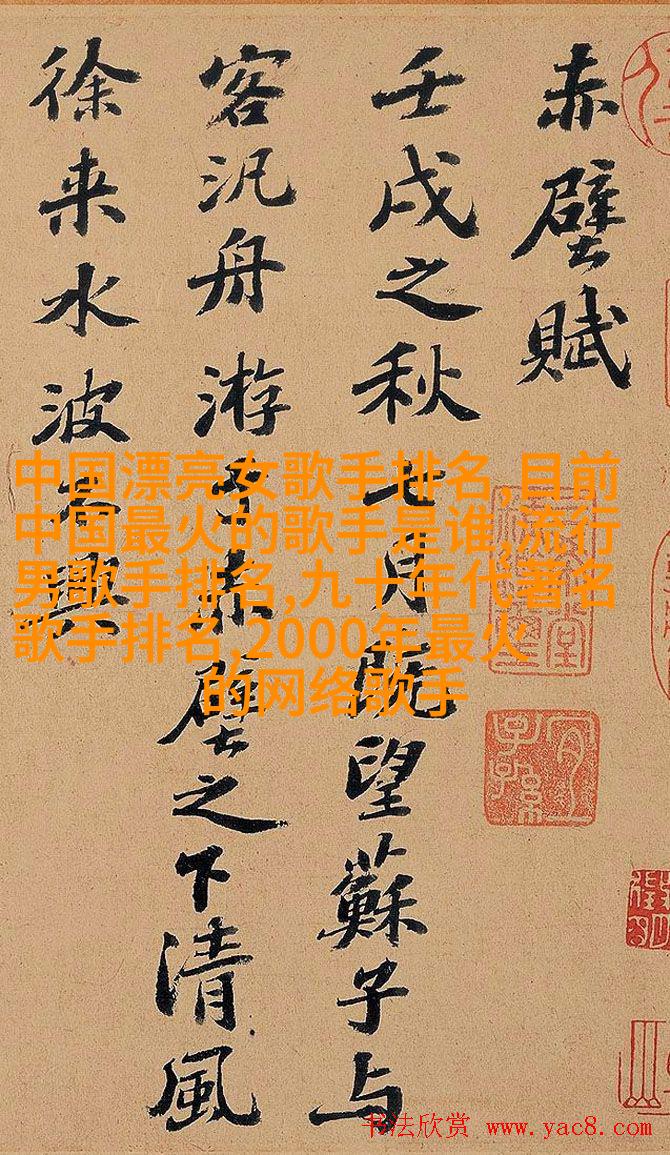 赤壁賦
壬戌之秋七月既望蘇子与
客汎舟游于赤壁之下清風
徐来水波不興
中国漂亮女歌手排名,目前
中国最火的歌手是谁,流行
男歌手排名,九十年代著名
歌手排名,2000年最火
的网络歌手
书法欣赏 www.yac8.com